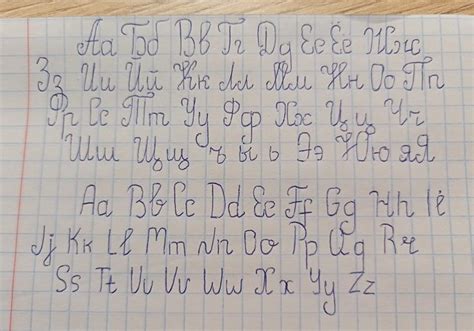 Аа Бб Вв Гг Дд Ее Ёё Жж
Зз Ии Йй Кк Лл Мм Нн Оо Пп
Рр Сс Тт Уу Фф Хх Цц Чч
Шш Щщ ъ ы ь Ээ Юю яЯ
Aa Bb Cc Dd Ee Ff Gg Hh Ii
Jj Kk Ll Mm Nn Oo Pp Qq Rr
Ss Tt Uu Vv Ww Xx Yy Zz